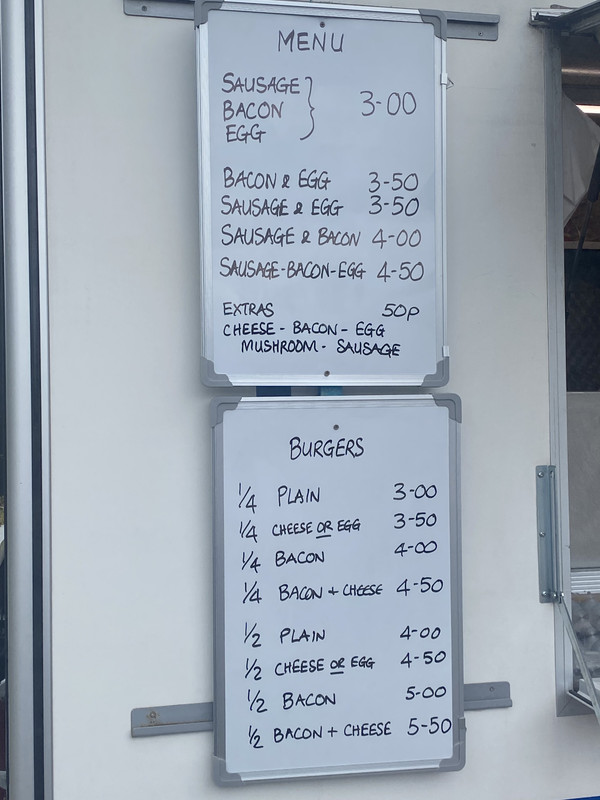 MENU
SAUSAGE
BACON } 3-00
EGG
BACON & EGG 3-50
SAUSAGE & EGG 3-50
SAUSAGE & BACON 4-00
SAUSAGE-BACON-EGG 4-50
EXTRAS 50p
CHEESE - BACON - EGG
MUSHROOM - SAUSAGE
BURGERS
1/4 PLAIN 3-00
1/4 CHEESE OR EGG 3-50
1/4 BACON 4-00
1/4 BACON + CHEESE 4-50
1/2 PLAIN 4-00
1/2 CHEESE OR EGG 4-50
1/2 BACON 5-00
1/2 BACON + CHEESE 5-50